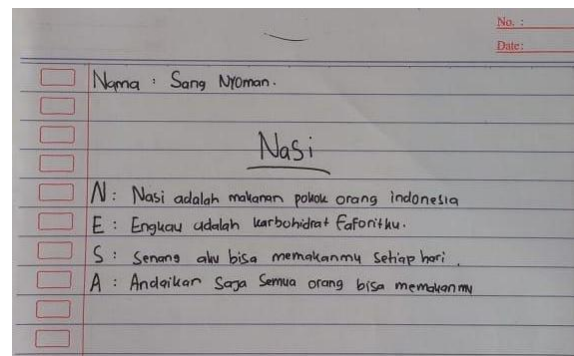 No. :
Date:
Nama : Sang Nyoman.
Nasi
N : Nasi adalah makanan pokok orang indonesia
E : Engkau adalah karbohidrat faforitku.
S : Senang aku bisa memakanmu setiap hari.
A : Andaikan saja semua orang bisa memakanmu